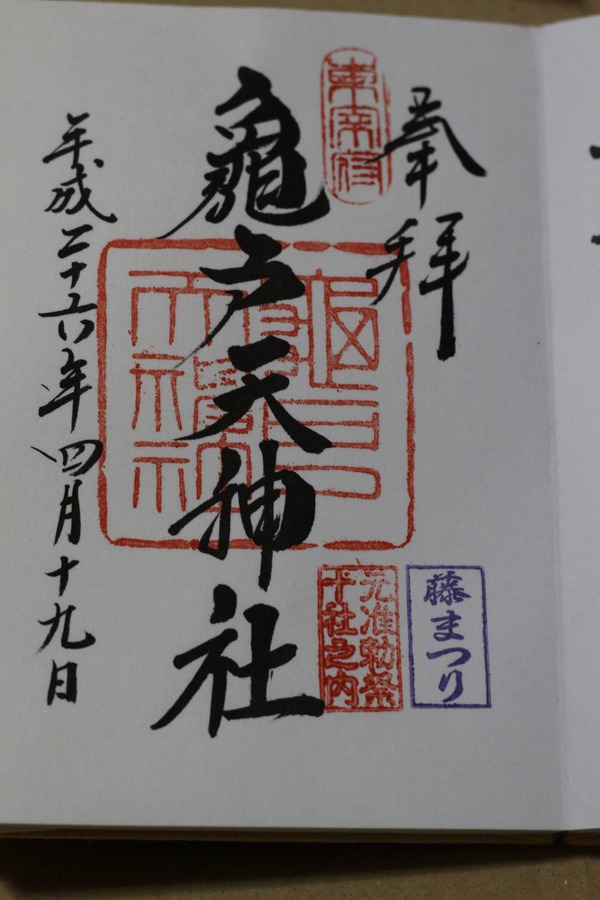 奉拝
東宰府
亀戸天神社
藤まつり
元准勅祭
十社之内
平成二十六年四月十九日